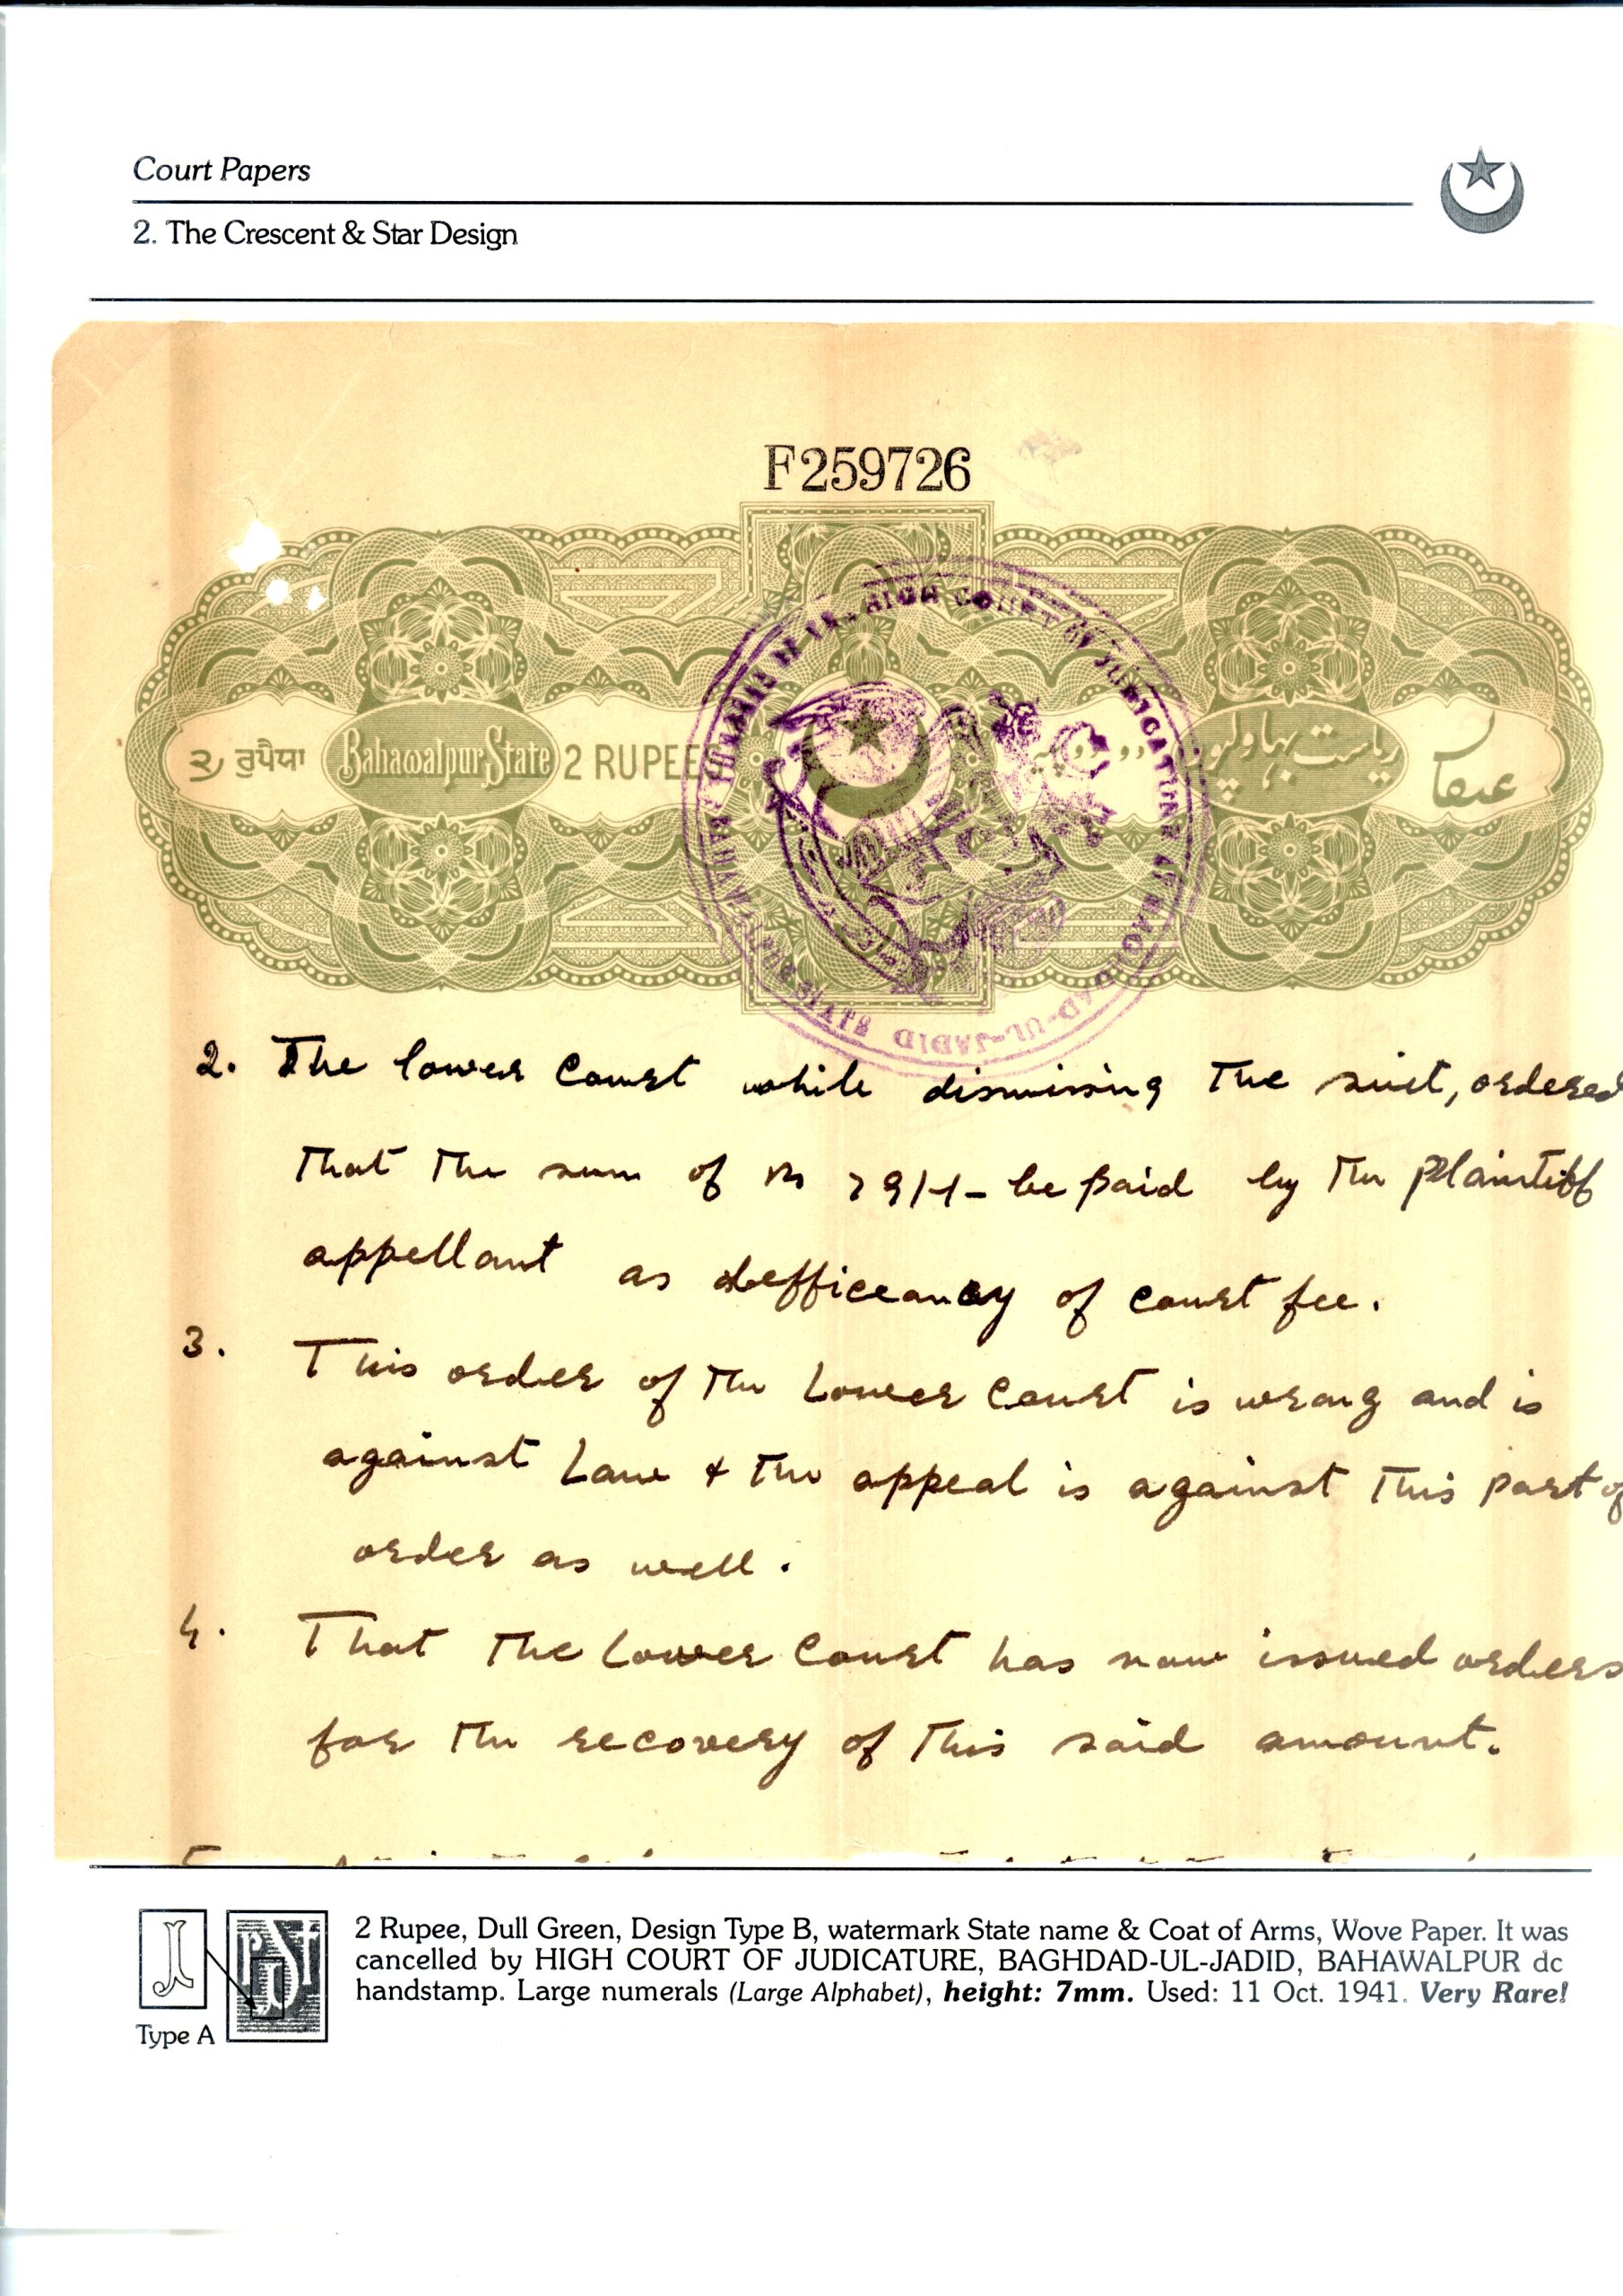 Court Papers
2. The Crescent & Star Design
F259726
२ ਰੁਪੈਯਾ Bahawalpur State 2 RUPEES دو روپیہ ریاست بہاولپور
HIGH COURT OF JUDICATURE AT BAGHDAD-UL-JADID BAHAWALPUR STATE
2. The lower Court while dismissing the suit, ordered
that the sum of Rs be paid by the Plaintiff
appellant as defficeancy of court fee.
3. This order of the Lower Court is wrong and is
against Law & the appeal is against this part of
order as well.
4. That the Lower Court has now issued orders
for the recovery of this said amount.
2 Rupee, Dull Green, Design Type B, watermark State name & Coat of Arms, Wove Paper. It was
cancelled by HIGH COURT OF JUDICATURE, BAGHDAD-UL-JADID, BAHAWALPUR dc
handstamp. Large numerals (Large Alphabet), height: 7mm. Used: 11 Oct. 1941. Very Rare!
Type A